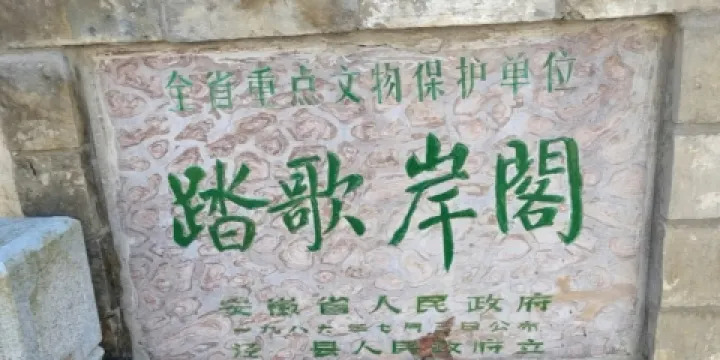 全省重点文物保护单位
踏歌岸閣
安徽省人民政府
一九八九年七月三日公布
泾县人民政府立